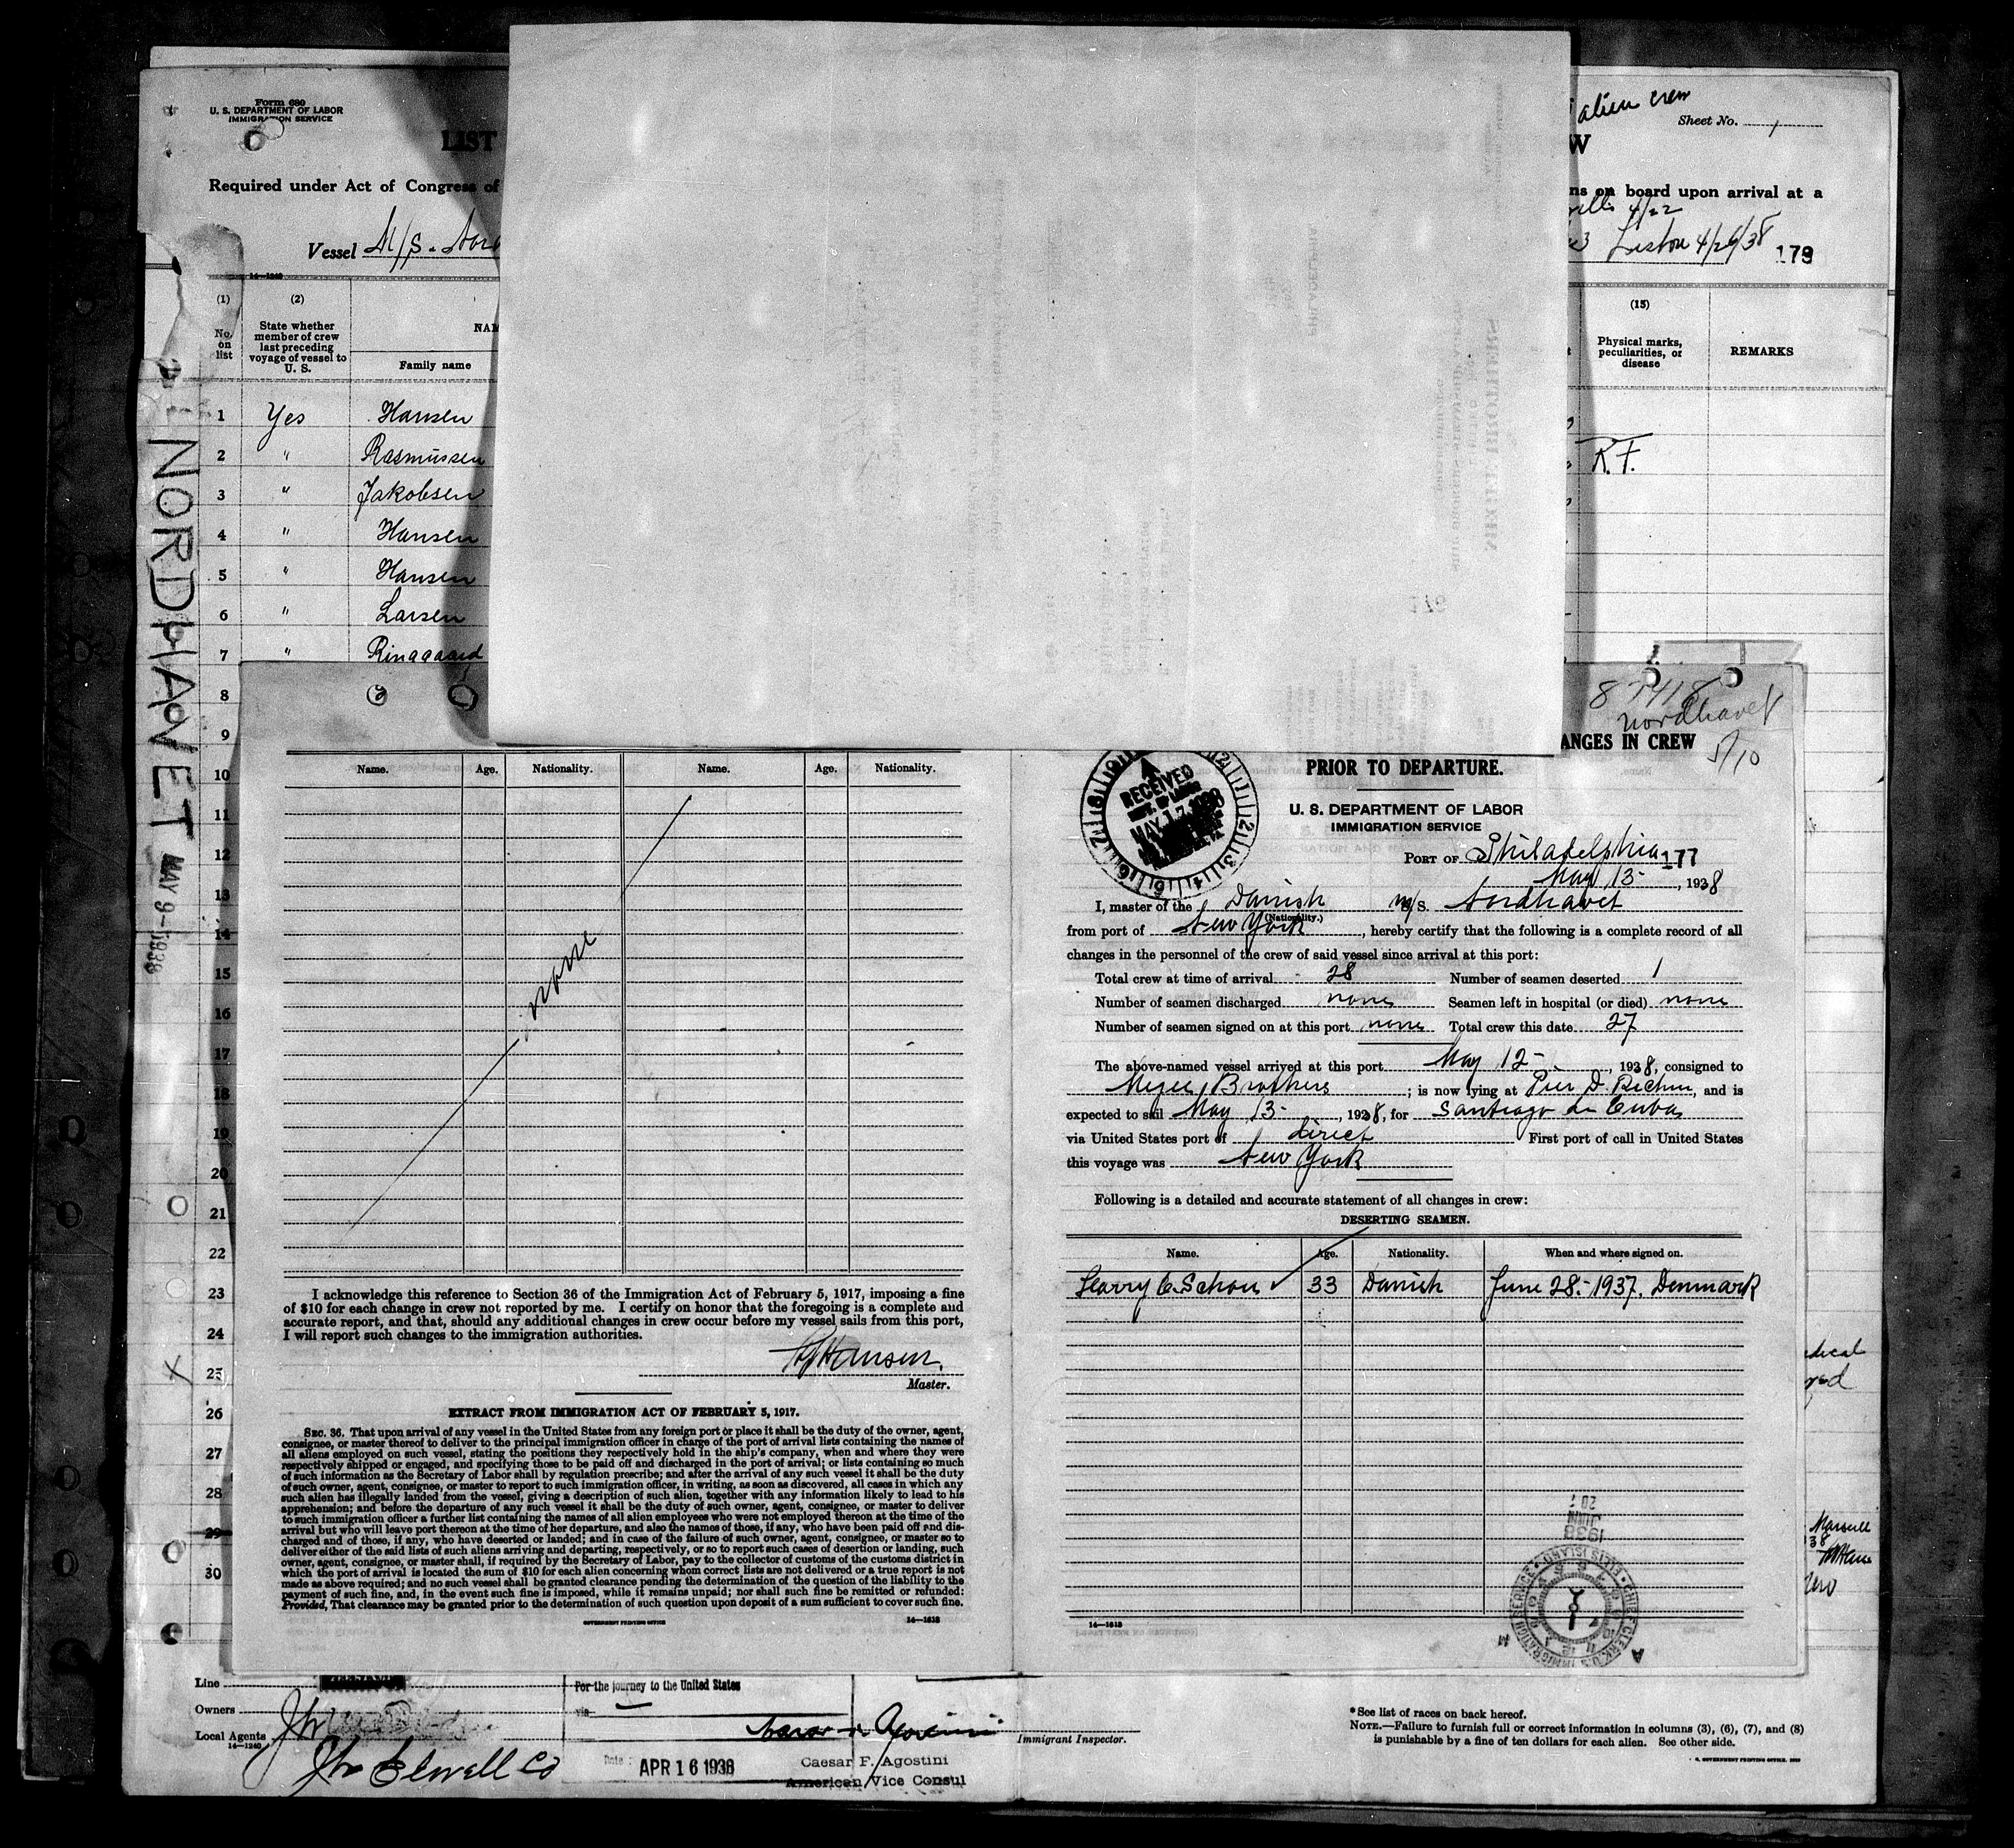 Form 680
U. S. DEPARTMENT OF LABOR
IMMIGRATION SERVICE
LIST
Required under Act of Congress of
Vessel M/S.
14—1240
alien crew
Sheet No. 1
W
ns on board upon arrival at a
4/22
Liston 4/26/38 179
(1)
No. on list
(2)
State whether member of crew last preceding voyage of vessel to U. S.
NAM
Family name
(15)
Physical marks, peculiarities, or disease
REMARKS
1 Yes Hansen
2 " Rasmussen
R.F.
3 " Jakobsen
4 " Hansen
5 " Hansen
6 " Larsen
7 " Ringgaard
8
9
10
11
12
13
14
15
16
17
18
19
20
21
22
23
24
25
26
27
28
29
30
NORDHAVET
MAY 9-1938
Name. Age. Nationality. Name. Age. Nationality.
none
I acknowledge this reference to Section 36 of the Immigration Act of February 5, 1917, imposing a fine
of $10 for each change in crew not reported by me. I certify on honor that the foregoing is a complete and
accurate report, and that, should any additional changes in crew occur before my vessel sails from this port,
I will report such changes to the immigration authorities.
Hansen.
Master.
EXTRACT FROM IMMIGRATION ACT OF FEBRUARY 5, 1917.
SEC. 36. That upon arrival of any vessel in the United States from any foreign port or place it shall be the duty of the owner, agent,
consignee, or master thereof to deliver to the principal immigration officer in charge of the port of arrival lists containing the names of
all aliens employed on such vessel, stating the positions they respectively hold in the ship's company, when and where they were
respectively shipped or engaged, and specifying those to be paid off and discharged in the port of arrival; or lists containing so much
of such information as the Secretary of Labor shall by regulation prescribe; and after the arrival of any such vessel it shall be the duty
of such owner, agent, consignee, or master to report to such immigration officer, in writing, as soon as discovered, all cases in which any
such alien has illegally landed from the vessel, giving a description of such alien, together with any information likely to lead to his
apprehension; and before the departure of any such vessel it shall be the duty of such owner, agent, consignee, or master to deliver
to such immigration officer a further list containing the names of all alien employees who were not employed thereon at the time of the
arrival but who will leave port thereon at the time of her departure, and also the names of those, if any, who have been paid off and dis-
charged and of those, if any, who have deserted or landed; and in case of the failure of such owner, agent, consignee, or master so to
deliver either of the said lists of such aliens arriving and departing, respectively, or so to report such cases of desertion or landing, such
owner, agent, consignee, or master shall, if required by the Secretary of Labor, pay to the collector of customs of the customs district in
which the port of arrival is located the sum of $10 for each alien concerning whom correct lists are not delivered or a true report is not
made as above required; and no such vessel shall be granted clearance pending the determination of the question of the liability to the
payment of such fine, and, in the event such fine is imposed, while it remains unpaid; nor shall such fine be remitted or refunded:
Provided, That clearance may be granted prior to the determination of such question upon deposit of a sum sufficient to cover such fine.
GOVERNMENT PRINTING OFFICE 14—1613
87418
Nordhavet
5/10
ANGES IN CREW
PRIOR TO DEPARTURE.
RECEIVED
MAY 17 1938
U. S. DEPARTMENT OF LABOR
IMMIGRATION SERVICE
PORT OF Philadelphia 177
May 13-, 1938
I, master of the Danish M/S. Nordhavet
(Nationality.)
from port of New York, hereby certify that the following is a complete record of all
changes in the personnel of the crew of said vessel since arrival at this port:
Total crew at time of arrival 28 Number of seamen deserted 1
Number of seamen discharged none Seamen left in hospital (or died) none
Number of seamen signed on at this port none Total crew this date 27
The above-named vessel arrived at this port May 12-, 1938, consigned to
Mezee Brothers; is now lying at Pier D. Richm, and is
expected to sail May 13-, 1938, for Santiago de Cuba
via United States port of direct First port of call in United States
this voyage was New York
Following is a detailed and accurate statement of all changes in crew:
DESERTING SEAMEN.
Name. Age. Nationality. When and where signed on.
Harry C. Schou 33 Danish June 28.-1937. Denmark
14—1613
1938
JUN
CHIEF CLERK, U.S. IMMIGRATION SERVICE • ELLIS ISLAND
Line
Owners
Local Agents
14—1240
Jno Elwell Co
For the journey to the United States
via
Date: APR 16 1938
Caesar F. Agostini
American Vice Consul
Immigrant Inspector.
*See list of races on back hereof.
NOTE.—Failure to furnish full or correct information in columns (3), (6), (7), and (8)
is punishable by a fine of ten dollars for each alien. See other side.